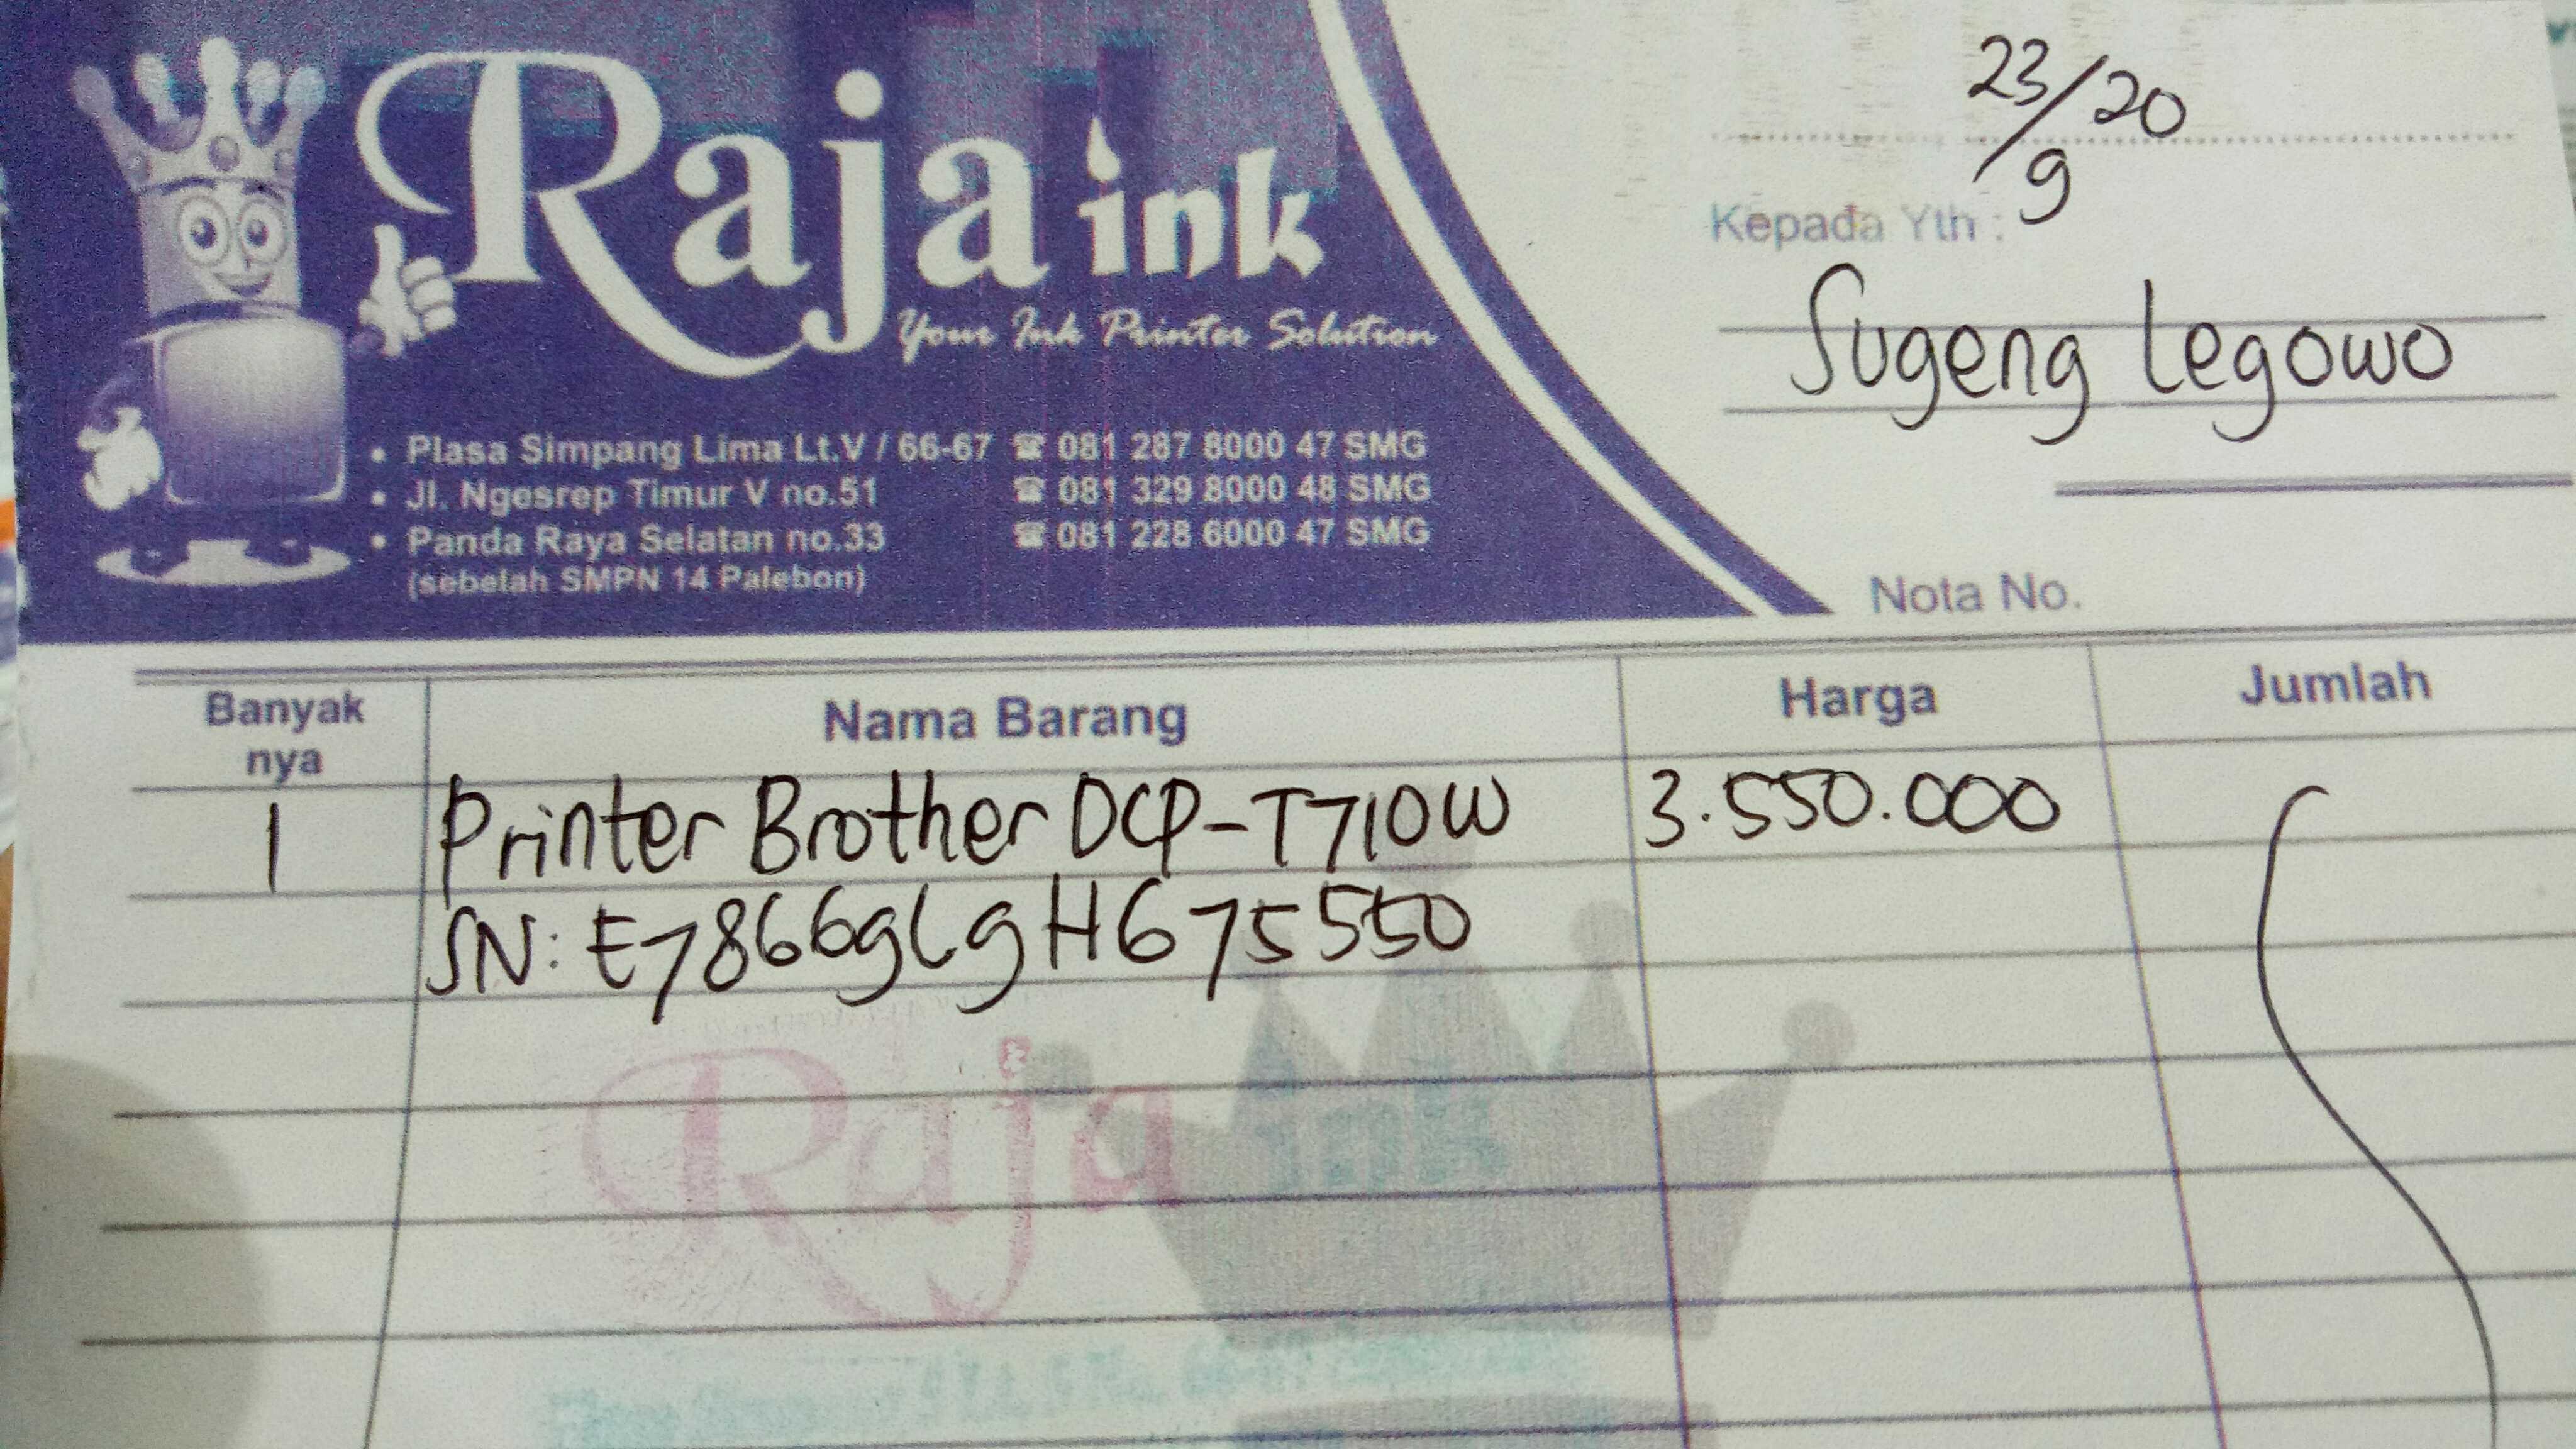 Raja ink
Your Ink Printer Solution
• Plasa Simpang Lima Lt.V / 66-67 ☎ 081 287 8000 47 SMG
• Jl. Ngesrep Timur V no.51 ☎ 081 329 8000 48 SMG
• Panda Raya Selatan no.33 ☎ 081 228 6000 47 SMG
(sebelah SMPN 14 Palebon)
23/9 20
Kepada Yth :
Sugeng Legowo
Nota No.
Banyak nya Nama Barang Harga Jumlah
1 Printer Brother DCP-T710W 3.550.000
SN: E78666gLgH675550
Raja ink